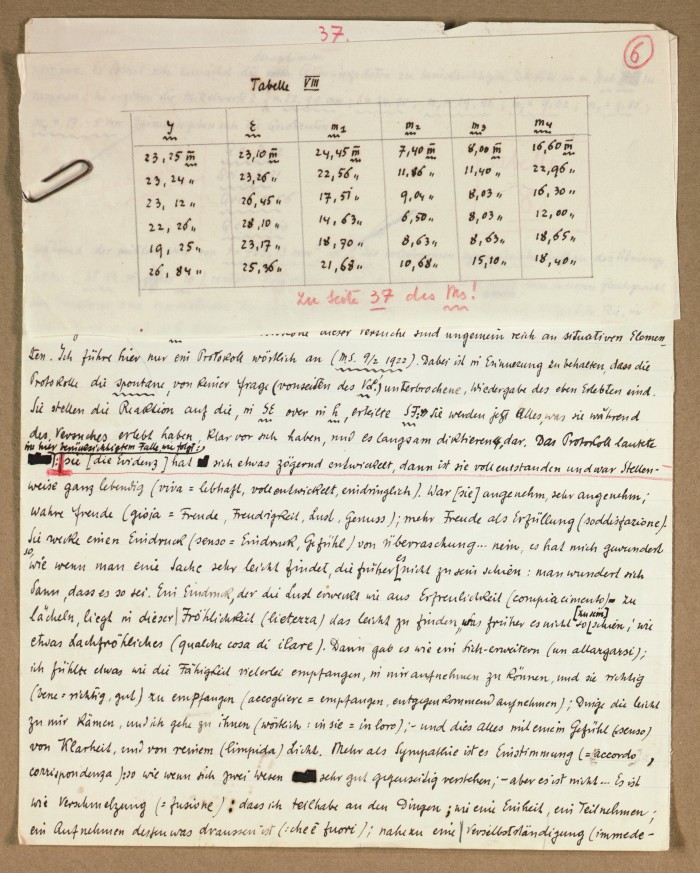 37.
6
Tabelle VIII
J Ɛ m1 m2 m3 m4
23,25 m 23,10 m 24,45 m 7,40 m 8,00 m 16,60 m
23,24 " 23,26 " 22,56 " 11,86 " 11,40 " 22,96 "
23,12 " 26,45 " 17,51 " 9,04 " 8,03 " 16,30 "
22,26 " 28,10 " 14,63 " 6,50 " 8,03 " 12,00 "
19,25 " 23,17 " 18,70 " 8,63 " 8,63 " 18,65 "
26,84 " 25,36 " 21,68 " 10,68 " 15,10 " 18,40 "
Zu Seite 37 des Ms!
dieser Versuche sind ungemein reich an situativen Elemen-
ten. Ich führe hier nur ein Protokoll wörtlich an (MS. 9/2 1922). Dabei ist in Erinnerung zu behalten, dass die
Protokolle die spontane, von keiner Frage (vonseiten des Vol.) unterbrochene, Wiedergabe des eben Erlebten sind.
Sie stellen die Reaktion auf die, in oder in h, erteilte Sie werden jetzt Alles, was sie während
des Versuches erlebt haben, klar vor sich haben, und es langsam diktieren, dar. Das Protokoll lautete
im hier berücksichtigten Falle, wie folgt:
sie [die Evidenz] hat sich etwas zögernd entwickelt, dann ist sie voll entstanden und war stellen-
weise ganz lebendig (viva = lebhaft, voll entwickelt, eindringlich). War [sie] angenehm, sehr angenehm;
wahre Freude (gioja = Freude, Freudigkeit, Lust, Genuss); mehr Freude als Erfüllung (soddisfazione).
Sie weckte einen Eindruck (senso = Eindruck, Gefühl) von Überraschung... nein, es hat mich gewundert
so, wie wenn man eine Sache sehr leicht findet, die früher [es nicht zu sein schien: man wundert sich
dann, dass es so sei. Ein Eindruck, der die Lust erweckt wie aus Erfreulichkeit (compiacimento) zu
lächeln, liegt in dieser Fröhlichkeit (lietezza) das leicht zu finden, was früher es nicht [zu sein] so schien; wie
etwas dachfröhliches (qualche cosa di ilare). Dann gab es wie ein Sich-erweitern (un allargarsi);
ich fühlte etwas wie die Fähigkeit vielerlei empfangen, in mir aufnehmen zu können, und sie richtig
(bene = richtig, gut) zu empfangen (accogliere = empfangen, entgegenkommend aufnehmen); Dinge die leicht
zu mir kämen, und ich gehe zu ihnen (wörtlich: in sie = in loro); - und dies Alles mit einem Gefühl (senso)
von Klarheit, und von reinem (limpida) Licht. Mehr als Sympathie ist es Einstimmung (= accordo,
corrispondenza): so wie wenn sich zwei Wesen sehr gut gegenseitig verstehen; - aber es ist nicht... Es ist
wie Verschmelzung (= fusione): dass ich teilhabe an den Dingen; wie eine Einheit, ein Teilnehmen;
ein Aufnehmen dessen was draussen ist (: che è fuori); nahezu eine Verselbstständigung (immede-